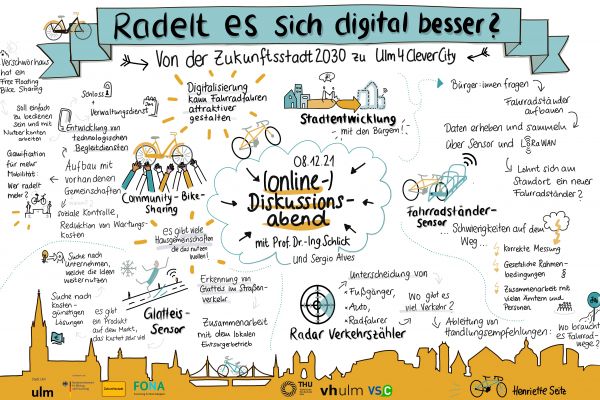 Radelt es sich digital besser?
Von der Zukunftsstadt 2030 zu Ulm4CleverCity
Verschwörhaus
hat ein
Free Floating
Bike Sharing
Soll einfach
zu bedienen
sein und mit
Nutzerkonten
arbeiten
Gamification
für mehr
Mobilität:
Wer radelt
mehr?
Schloss
+
Verwaltungsdienst
Entwicklung von
technologischen
Begleitdiensten
Aufbau mit
vorhandenen
Gemeinschaften
soziale Kontrolle,
Reduktion von Wartungs-
kosten
Digitalisierung
kann Fahrradfahren
attraktiver
gestalten
Community-Bike-
Sharing
es gibt viele
Hausgemeinschaften
die das nutzen
wollen!
Stadtentwicklung
mit den Bürgern!
08.12.21
(Online-)
Diskussions-
abend
mit Prof. Dr.-Ing Schlick
und Sergio Alves
Bürger:innen fragen
Fahrradständer
aufbauen
Daten erheben und sammeln
über Sensor und LoRaWAN
Lohnt sich am
Standort ein neuer
Fahrradständer?
Fahrradständer-
Sensor
Schwierigkeiten auf dem
Weg...
korrekte Messung
Gesetzliche Rahmen-
bedingungen
Zusammenarbeit mit
vielen Ämtern und
Personen.
Suche nach
Unternehmen,
welche die Idee
weiternutzen
Suche nach
kosten-
günstigen
Lösungen
es gibt
ein Produkt
auf dem Markt,
das kostet sehr viel
Glatteis-
Sensor
Erkennung von
Glatteis im Straßen-
verkehr
Zusammenarbeit
mit dem lokalen
Entsorgerbetrieb
Radar Verkehrszähler
Unterscheidung von
Fußgänger,
Auto,
Radfahrer
Wo gibt es
viel Verkehr?
Ableitung von
Handlungsempfehlungen:
Wo braucht
es Fahrrad-
wege?
ulm
Zukunftsstadt
FONA
THU
vhulm
VSC
Henriette Seitz